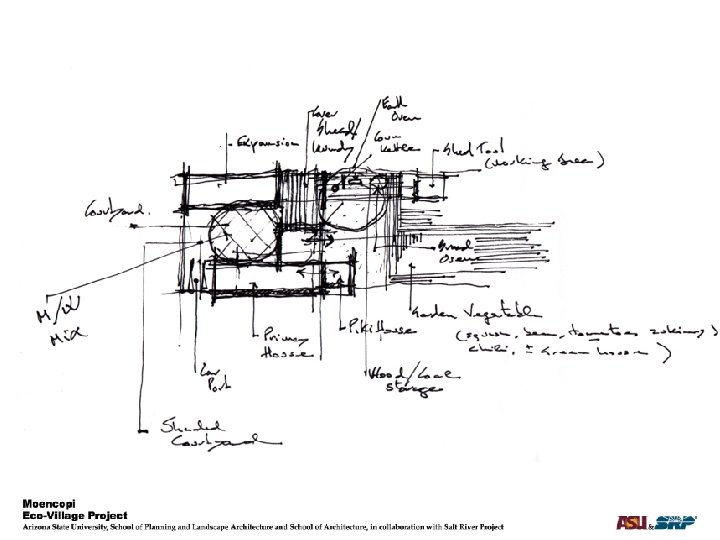 Earth
Oven
Cover
Shead/
Laundry
Corn
Kettle
Expansion
Shed Tool
(working area)
Courtyard.
M/W
Mix
Garden Vegetable
(squash, bean, tomatoes
chili, ± Green house)
PiKi House
Primary
House
Car
Port
Wood/Coal
Storage
Shaded
Courtyard
Moencopi
Eco-Village Project
Arizona State University, School of Planning and Landscape Architecture and School of Architecture, in collaboration with Salt River Project
ASU & SRP